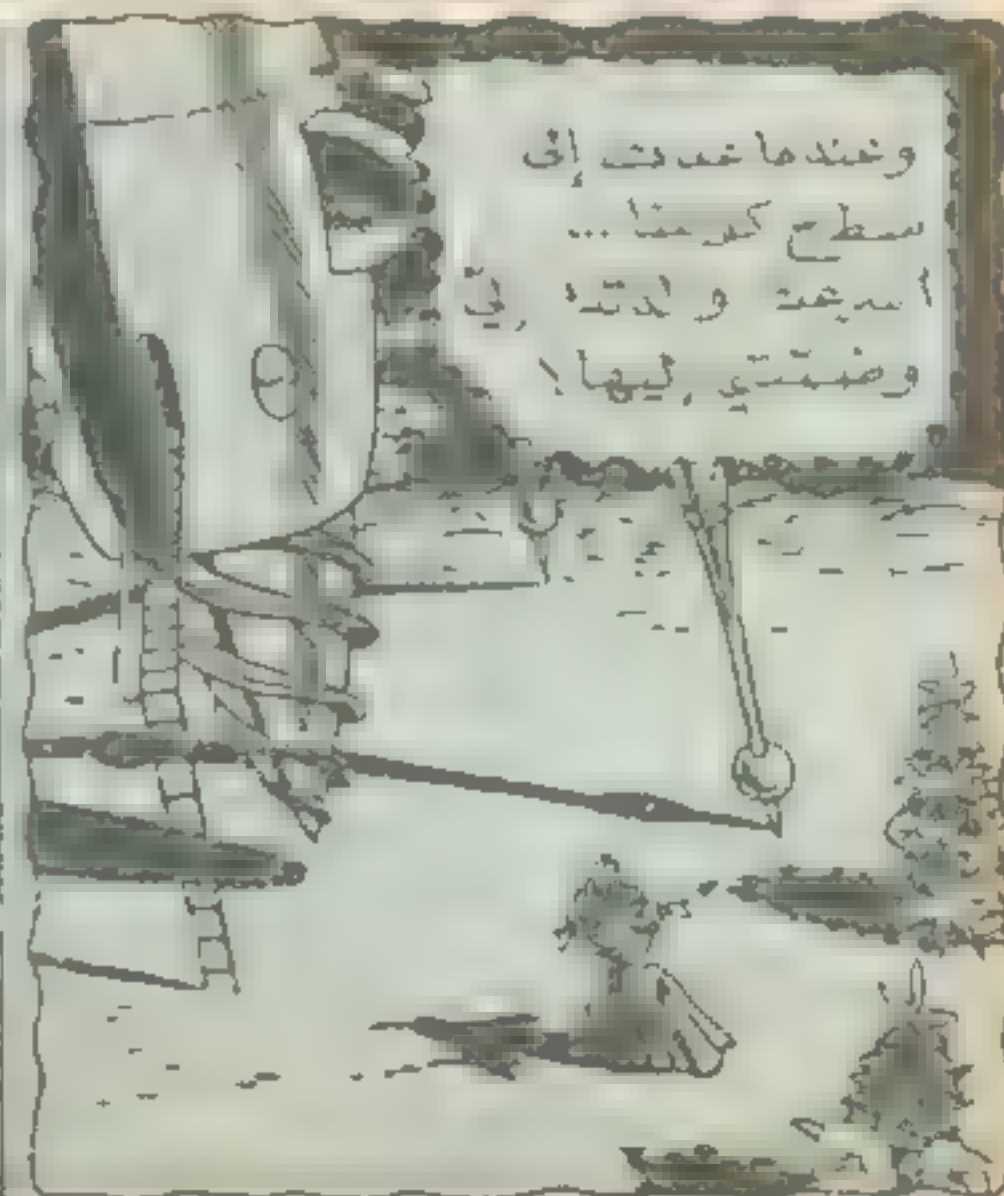 وعندما عدت إلى
سطح كوكبنا ...
أسرعت والدتك إليّ
وضمتني إليها !